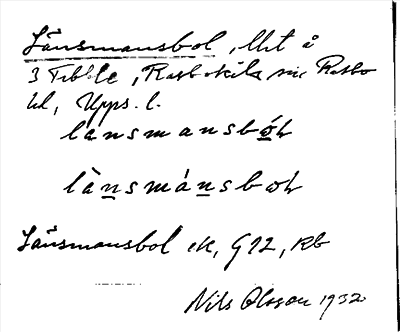 Länsmansbol, lht å
3 Tibble, Rasbokils sn Rasbo
hd, Upps. l.
lansmansbo̱ɫ
là̱nsmá̱nsboɫ
Länsmansbol ek, G12, Rb
Nils Olsson 1932